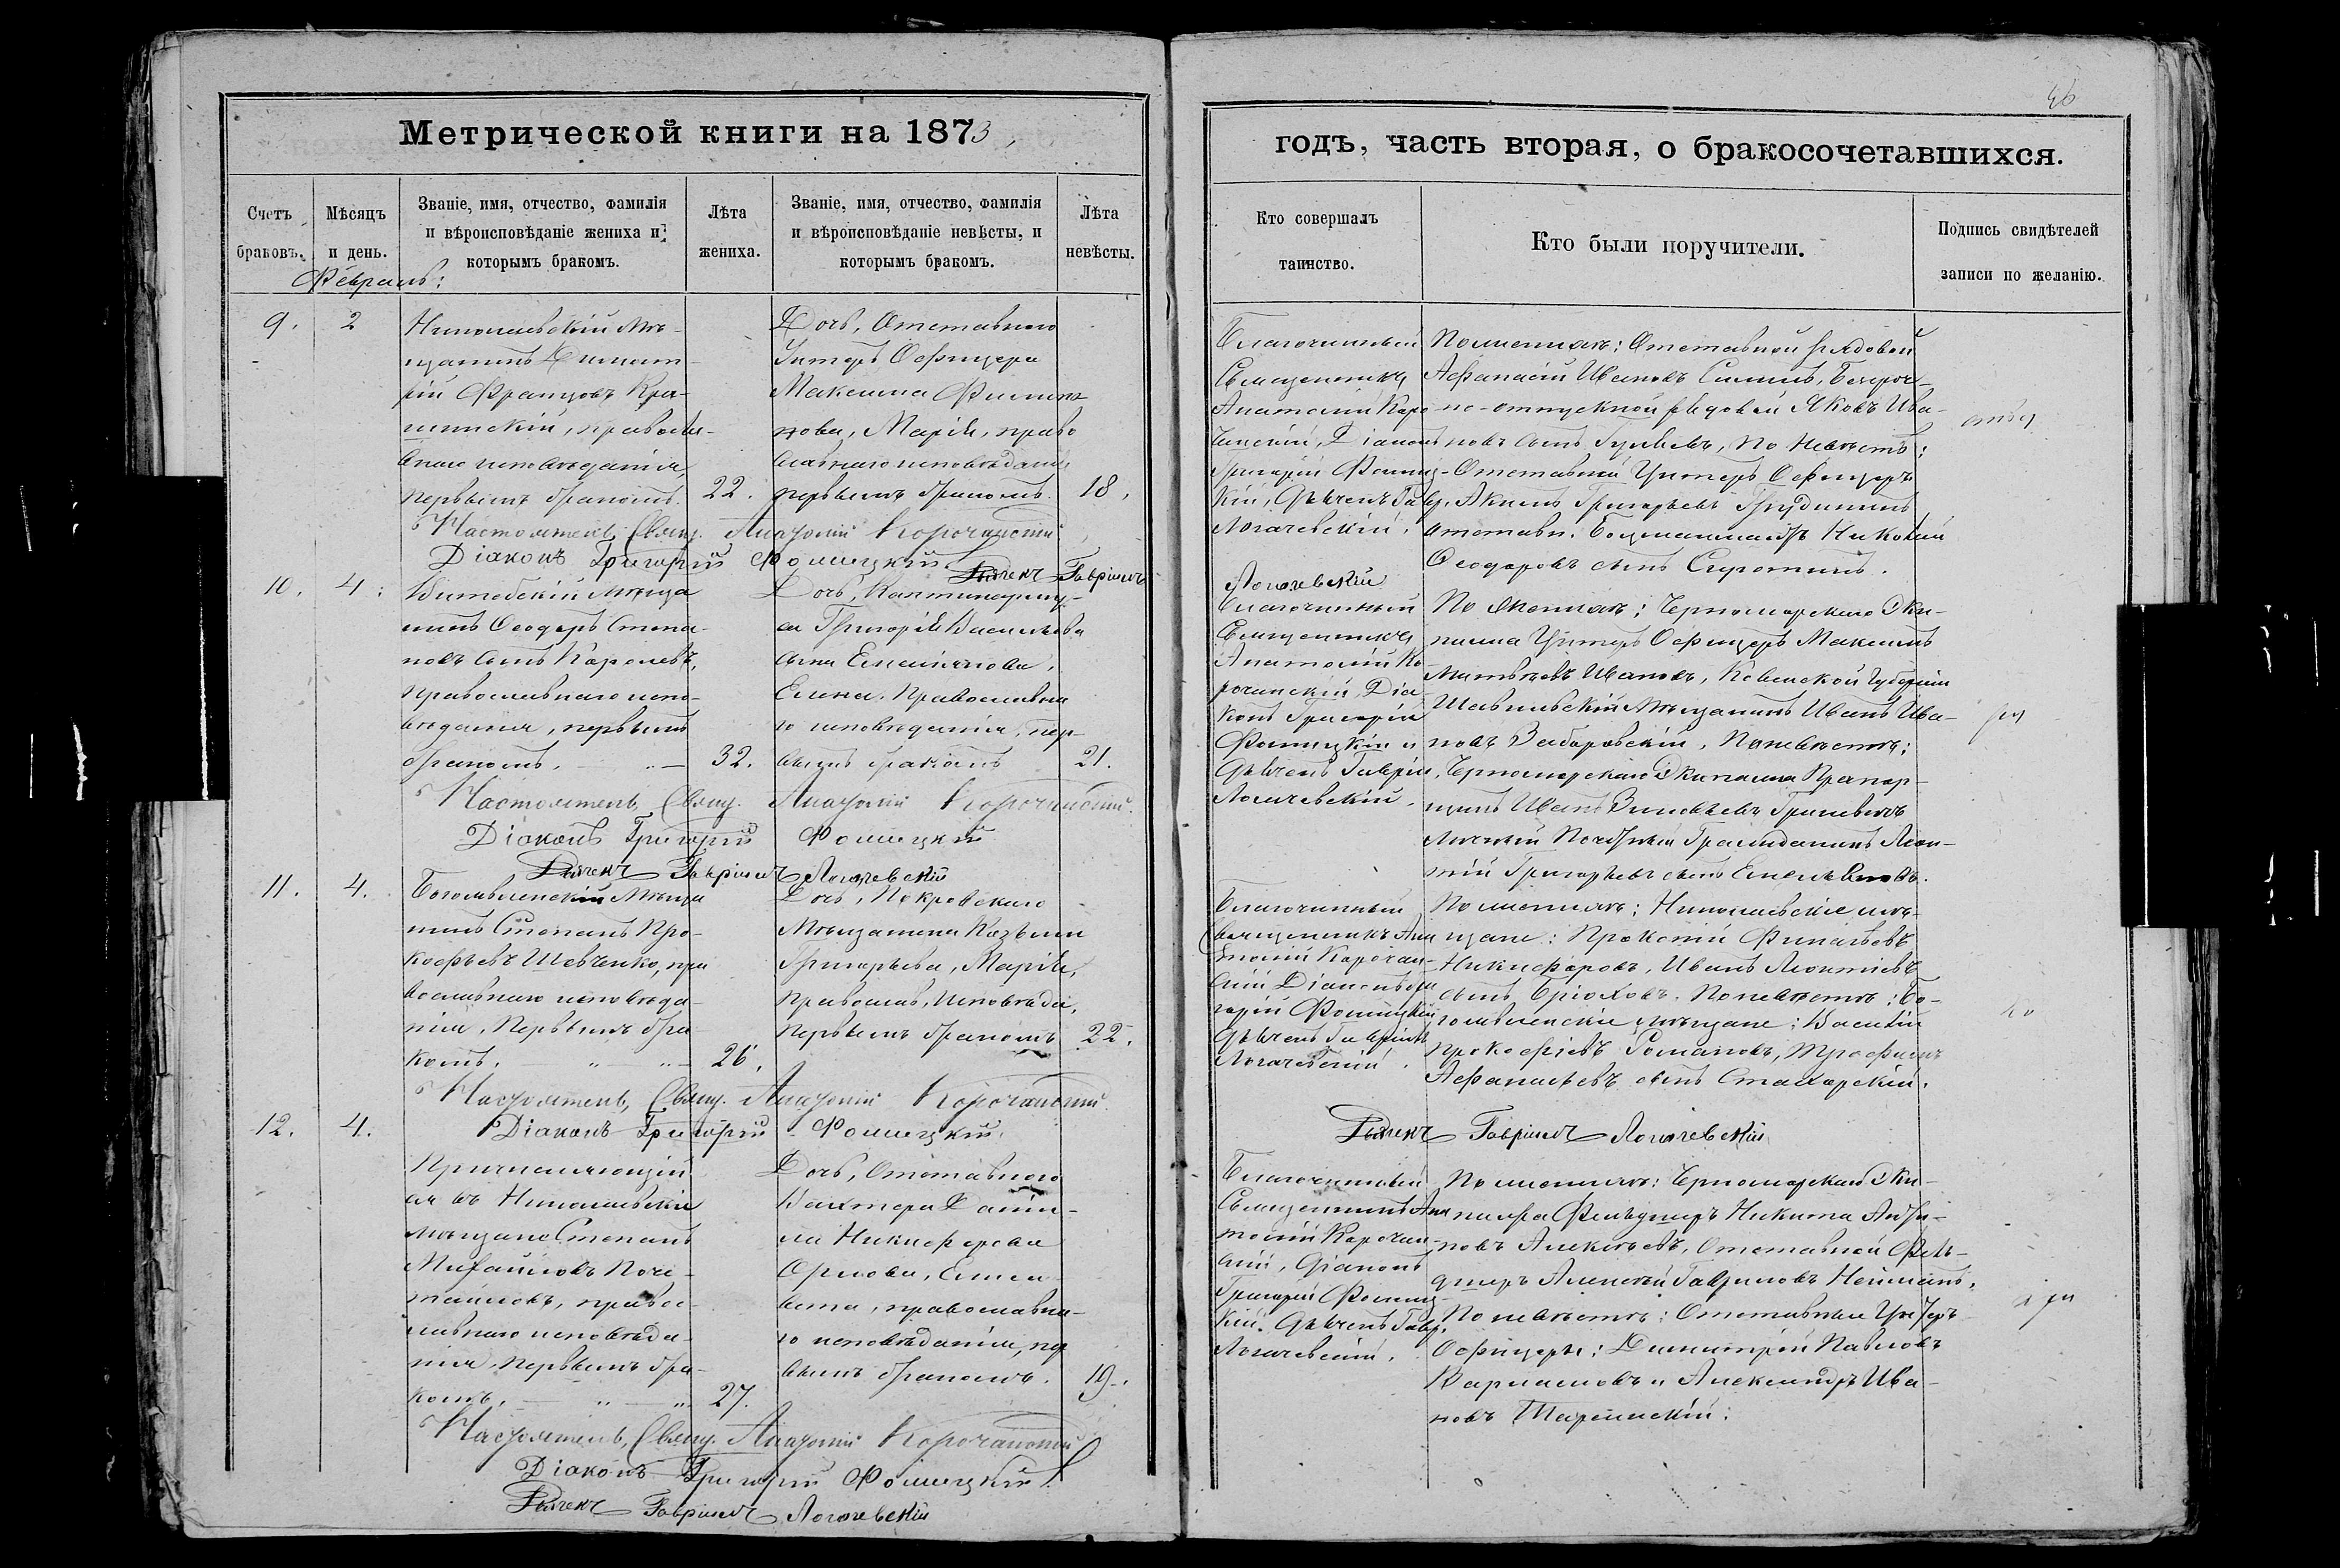 46
Метрической книги на 1873
годъ, часть вторая, о бракосочетавшихся.
Счетъ браковъ.
Мѣсяцъ и день.
Званіе, имя, отчество, фамилія и вѣроисповѣданіе жениха и которымъ бракомъ.
Лѣта жениха.
Званіе, имя, отчество, фамилія и вѣроисповѣданіе невѣсты, и которымъ бракомъ.
Лѣта невѣсты.
Кто совершалъ таинство.
Кто были поручители.
Подпись свидѣтелей записи по желанію.
Февраль:
9.
2
Николаевскій мѣ-
щанинъ Димит-
рій Францовъ
православ-
наго исповѣданія,
первымъ бракомъ.
22.
Дочь, Отставного
Унтеръ Офицера
Максима Филип-
пова, Марія, право
славнаго исповѣданія
первымъ бракомъ.
18.
Благочинный
Священникъ
Анатолій Коро-
чанскій, Діаконъ
Григорій Фомиц-
кій, Дьячекъ Гавр.
Логачевскій.
По женихѣ: Отставной рядовой
Афанасій Ивановъ
но-отпускной рядовой Яковъ Ива-
новъ сынъ По невѣстѣ:
Отставной Унтеръ Офицеръ
Акимъ Григорьевъ
отставн. Николай
Феодоровъ сынъ Сиротинъ.
Настоятель, Свящ. Анатолій Корочанскій
Діаконъ Григорій Фомицкій Дьячекъ Гавріилъ
Логачевскій
10.
4.
Витебскій мѣща
нинъ Феодоръ Степа-
новъ сынъ Королевъ,
православнаго испо-
вѣданія, первымъ
бракомъ.
32.
Дочь,
са Григорія Васильева
сына Емельянова,
Елена, Православна
го исповѣданія, пер-
вымъ бракомъ
21.
Благочинный
Священникъ
Анатолій Ко-
рочанскій, Діа-
конъ Григорій
Фомицкій и
Дьячекъ Гавріил.
Логачевскій.
По женихѣ: Черноморскаго Эки-
пажа Унтеръ Офицеръ Максимъ
Матвѣевъ Ивановъ, Ковенской губерніи
Шавельскій мѣщанинъ Иванъ Ива-
новъ Заборовскій, По невѣстѣ:
Черноморскаго Экипажа Прапор-
щикъ Иванъ Зиновьевъ Гриневичъ
Личный Почетный Гражданинъ Леон-
тій Григорьевъ сынъ Емельяновъ.
Настоятель, Свящ. Анатолій Корочанскій.
Діаконъ Григорій Фомицкій
Дьячекъ Гавріилъ Логачевскій
11.
4.
Богоявленскій мѣща
нинъ Степанъ Про-
кофьевъ Шевченко, пра
вославнаго исповѣда-
нія, Первымъ бра
комъ.
26.
Дочь, Покровскаго
Мѣщанина Козьмы
Григорьева, Марія,
Православ. исповѣда,
первымъ бракомъ
22.
Благочинный
Священникъ Ана
толій Корочан-
скій Діаконъ Гри
горій Фомицкій
Дьячекъ Гавріилъ
Логачевскій.
По женихѣ: Николаевскіе мѣ-
щане: Прокопій
Никифоровъ, Иванъ Леонтіевъ
сынъ Брюховъ. По невѣстѣ: Бо-
гоявленскіе мѣщане: Василій
Прокофіевъ Романовъ, Трофимъ
Афанасьевъ сынъ Стахорскій.
Настоятель, Свящ. Анатолій Корочанскій.
Діаконъ Григорій Фомицкій.
Дьячекъ Гавріилъ Логачевскій
12.
4.
Причисляющій
ся въ Николаевскіе
мѣщане Степанъ
Михайловъ
правос-
лавнаго исповѣда-
нія, Первымъ бра-
комъ.
27.
Дочь, Отставного
Вахтера Дани-
ла Никифорова
Орлова, Елиса-
вета, православна-
го исповѣданія, пер
вымъ бракомъ.
19.
Благочинный
Священникъ Ана
толій Корочан-
скій, Діаконъ
Григорій Фомиц-
кій. Дьячекъ Гавр.
Логачевскій.
По женихѣ: Черноморскаго Эки-
пажа Фельдшеръ Никита
Алексѣевъ, Отставной Фель-
дшеръ Алексѣй Гавриловъ
По невѣстѣ: Отставные Унтеръ
Офицеры: Димитрій Павловъ
Варламовъ и Александръ Ива-
новъ
Настоятель, Свящ. Анатолій Корочанскій
Діаконъ Григорій Фомицкій.
Дьячекъ Гавріилъ Логачевскій